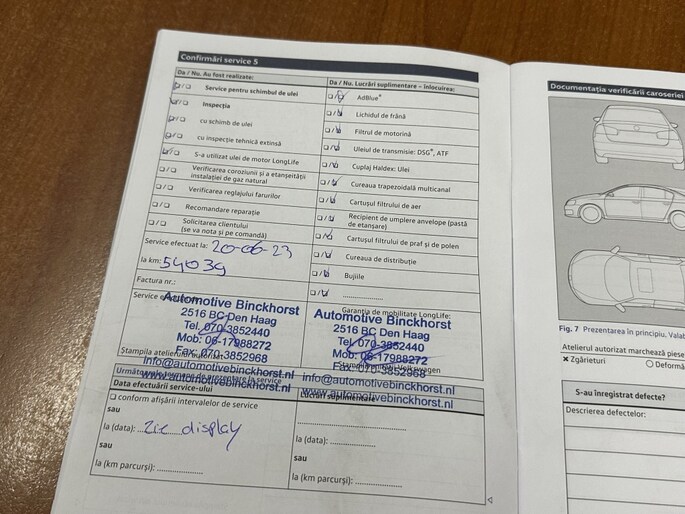 Confirmări service 5
Da / Nu. Au fost realizate:
Service pentru schimbul de ulei
Inspecția
cu schimb de ulei
cu inspecție tehnică extinsă
S-a utilizat ulei de motor LongLife
Verificarea coroziunii și a etanșeității
instalației de gaz natural
Verificarea reglajului farurilor
Recomandare reparație
Solicitarea clientului
(se va nota și pe comandă)
Service efectuat la: 20-06-23
la km: 54039
Factura nr.:
Service
Automotive Binckhorst
2516 BC Den Haag
Tel. 070-3852440
Mob: 06-17988272
Fax: 070-3852968
Ștampila atelierului
info@automotivebinckhorst.nl
www.automotivebinckhorst.nl
Da / Nu. Lucrări suplimentare – înlocuirea:
AdBlue®
Lichidul de frână
Filtrul de motorină
Uleiul de transmisie: DSG®, ATF
Cuplaj Haldex: Ulei
Cureaua trapezoidală multicanal
Cartușul filtrului de aer
Recipient de umplere anvelope (pastă
de etanșare)
Cartușul filtrului de praf și de polen
Cureaua de distribuție
Bujiile
Garanția de mobilitate LongLife:
Automotive Binckhorst
2516 BC Den Haag
Tel. 070-3852440
Mob: 06-17988272
Fax: 070-3852968
Volkswagen
info@automotivebinckhorst.nl
www.automotivebinckhorst.nl
Data efectuării service-ului
conform afișării intervalelor de service
sau
la (data): zie display
sau
la (km parcurși):
Lucrări suplimentare
la (data):
sau
la (km parcurși):
Documentația verificării caroseriei
Fig. 7 Prezentarea în principiu. Valab
Atelierul autorizat marchează piese
x Zgârieturi
O Deformă
S-au înregistrat defecte?
Descrierea defectelor: